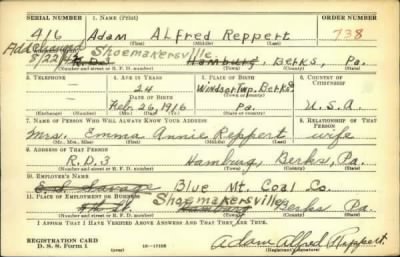 SERIAL NUMBER 1. NAME (Print) ORDER NUMBER
416 Adam ALfred Reppert 738
(First) (Middle) (Last)
Shoemakersville
5/22/42 R.D.3 Hamburg, Berks, Pa.
(Number and street or R. F. D. number) (Town) (County) (State)
3. TELEPHONE 4. AGE IN YEARS 5. PLACE OF BIRTH 6. COUNTRY OF CITIZENSHIP
24 Windsor Twp. Berks
DATE OF BIRTH
Feb. 26, 1916 Pa. U.S.A.
7. NAME OF PERSON WHO WILL ALWAYS KNOW YOUR ADDRESS 8. RELATIONSHIP OF THAT PERSON
Mrs. Emma Annie Reppert wife
(Mr., Mrs., Miss) (First) (Middle) (Last)
9. ADDRESS OF THAT PERSON
R.D.3 Hamburg Berks, Pa.
(Number and street or R. F. D. number) (Town) (County) (State)
10. EMPLOYER'S NAME
Savage Blue Mt. Coal Co.
11. PLACE OF EMPLOYMENT OR BUSINESS Shoemakersville
Hamburg Berks Pa.
(Number and street or R. F. D. number) (Town) (County) (State)
I AFFIRM THAT I HAVE VERIFIED ABOVE ANSWERS AND THAT THEY ARE TRUE.
REGISTRATION CARD
D. S. S. Form 1
Adam Alfred Reppert.
(Registrant's signature)